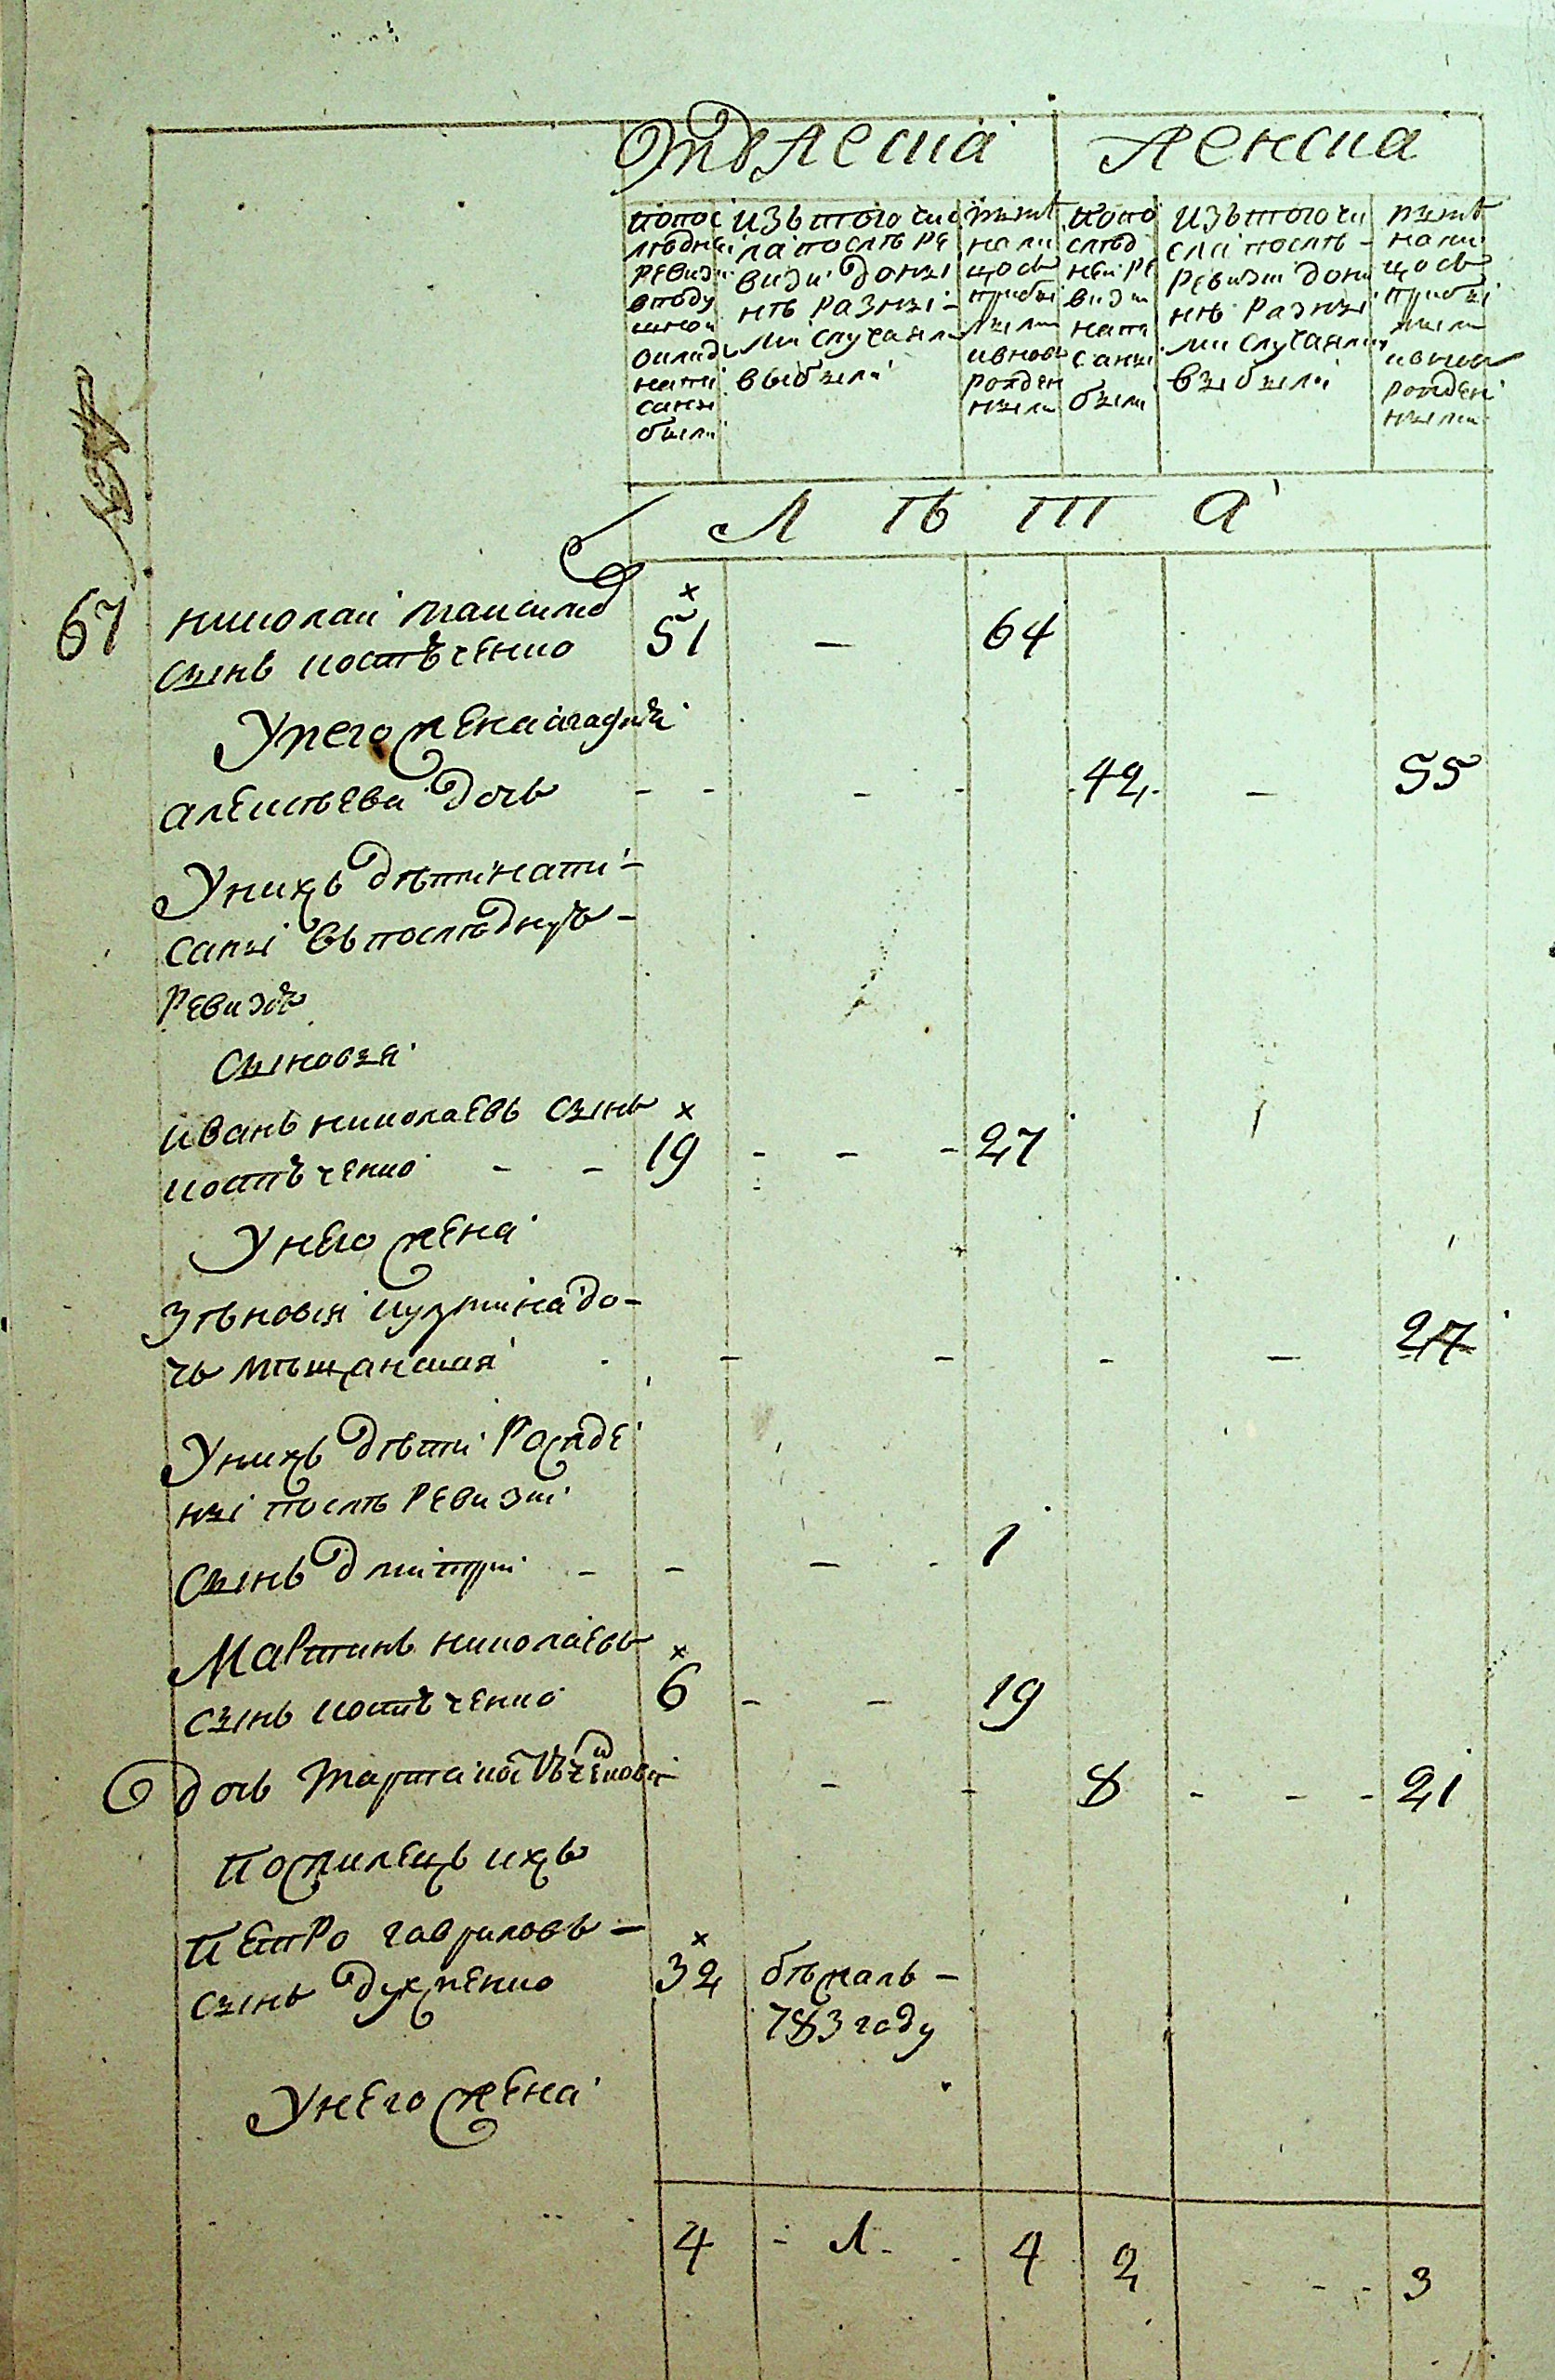 Мужеска Женска
Попос
лѣдней
ревизїи
вподу
шном
окладѣ
напи
саны
были
Изътого чис
ла послѣ ре
визїи доны
нѣ разны
ми случаями
выбыли
нынѣ
нали
цосъ
прибы
лыми
ивновь
рожден
ными
Попо
слѣд
ней ре
визїи
напи
саны
были
Изътого чи
сла послѣ
ревизїи доны
нѣ разны
ми случаями
выбыли
нынѣ
нали
цосъ
прибы
лыми
ивновь
рожден
ными
Лѣта
67 николай максимов 51 — 64
сынъ костѣченко
Унего жена агафия
алексѣева дочь - - - - 42 — 55
Унихъ дѣти напи-
саны въпослѣднуѣ-
ревизїѣ
Сыновья
иванъ николаевъ сынъ
костѣченко - - 19 - - - 27
Унего жена
зѣновия кузмина до-
чь мѣщанская - - - - 27
Унихъ дѣти рожде
ны послѣ ревизїи
Сынъ дмитрий - - — - 1
Мартинъ николаевъ
сынъ костѣченко 6 - - 19
дочь марта - - 8 - - - 21
Пожилецъ ихъ
Петро гавриловъ —
сынъ духженко 32 бѣжалъ —
783 году
Унего жена
4 - 1 - - 4 2 - - 3